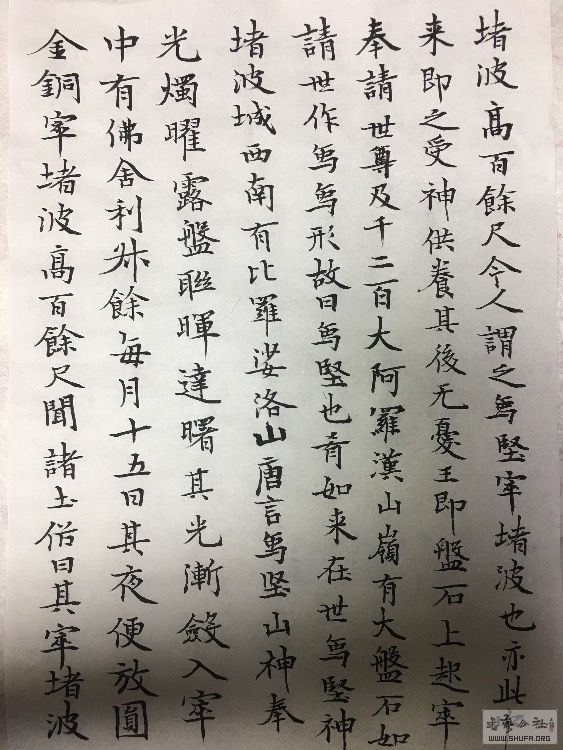 堵波高百餘尺今人謂之象堅窣堵波也亦此
来即之受神供養其後无憂王即盤石上起窣
奉請世尊及千二百大阿羅漢山嶺有大盤石如
請世作象象形故曰象堅也昔如来在世象堅神
堵波城西南有比羅娑洛山唐言象坚山神奉
光燭曜露盤聯暉達曙其光漸斂入窣
中有佛舍利升餘每月十五日其夜便放圓
金銅窣堵波高百餘尺聞諸土俗曰其窣堵波
书艺公社
WWW.SHUFA.ORG